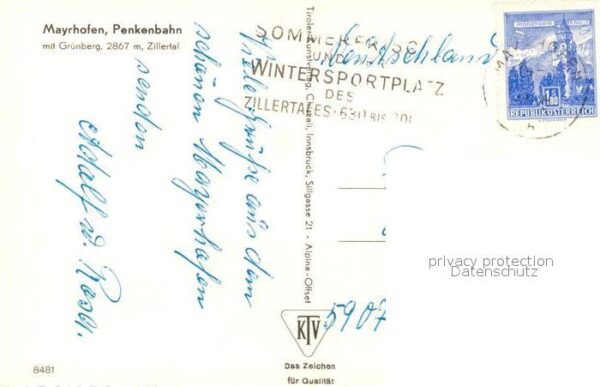 Mayrhofen, Penkenbahn
mit Grünberg, 2867 m, Zillertal
Viele Grüße aus dem
schönen Mayerhofen
senden
Adolf u. Rosa.
8481
Tiroler Kunstverlag Chizzali, Innsbruck, Sillgasse 21 - Alpina-Offset
KTV
Das Zeichen
für Qualität
SOMMERFRISCHE
UND
WINTERSPORTPLATZ
DES
ZILLERTALES · 630 BIS
Deutschland
1.80
REPUBLIK ÖSTERREICH
5907
privacy protection
Datenschutz